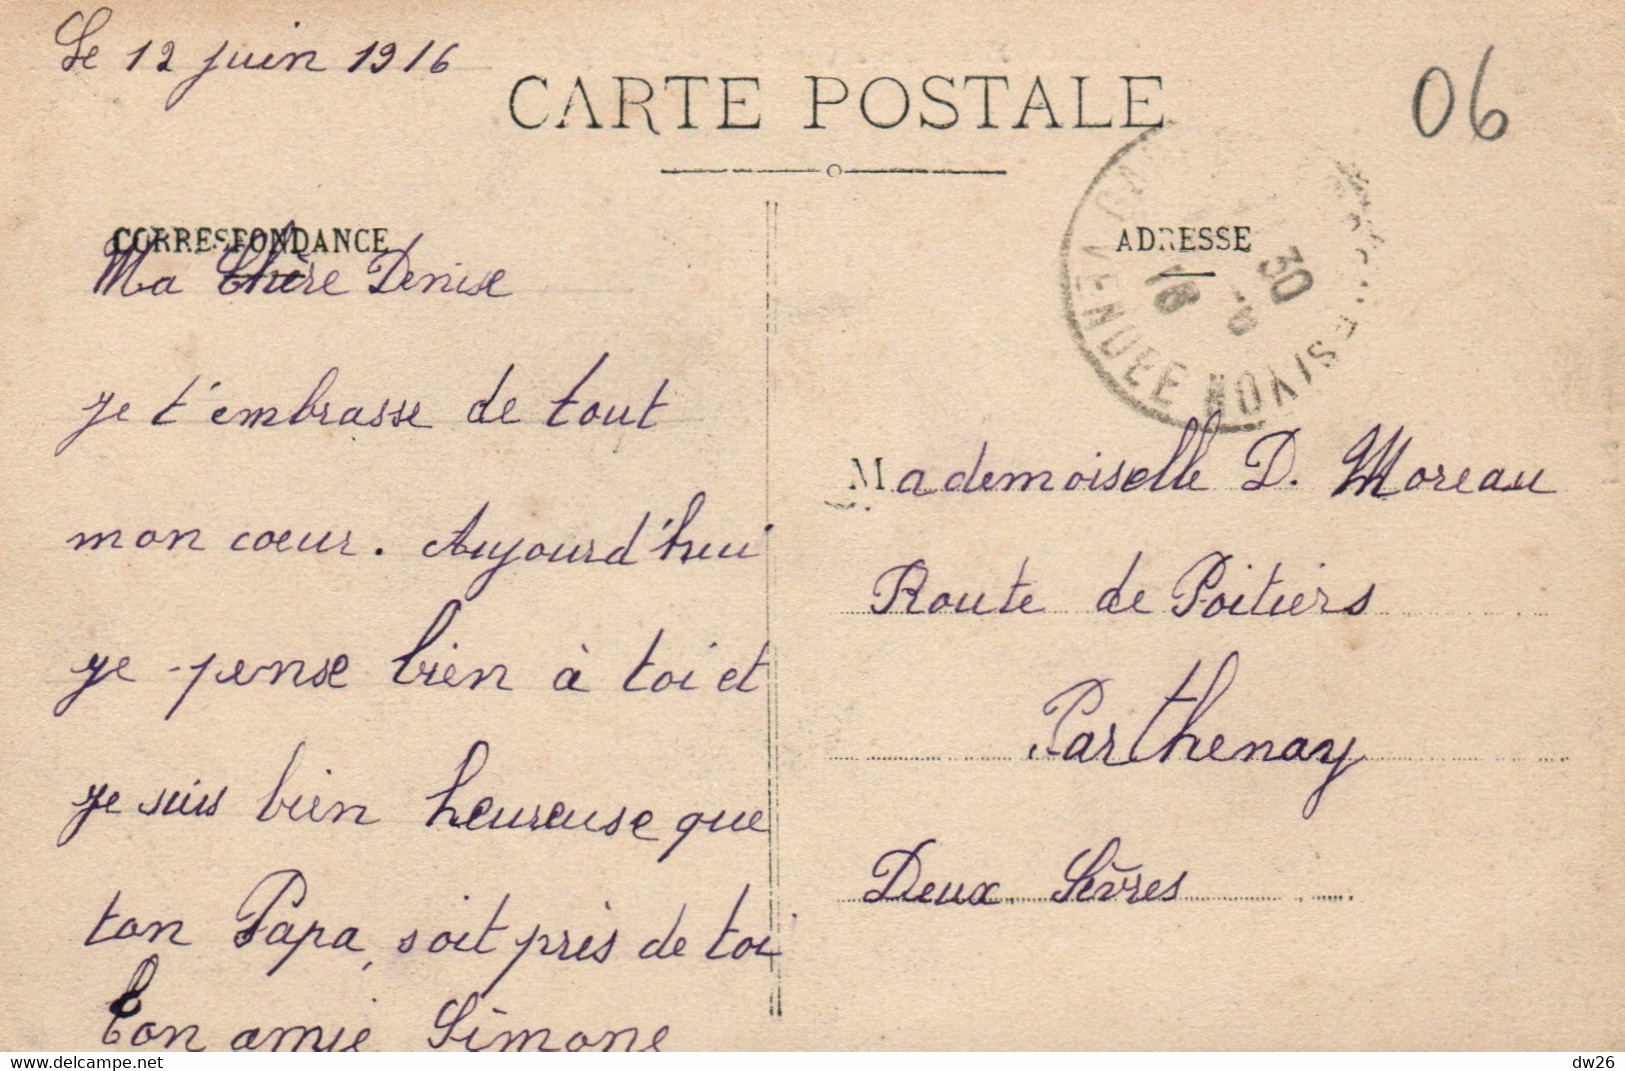 Le 12 juin 1916
CARTE POSTALE
06
CORRESPONDANCE
Ma Chère Denise
je t'embrasse de tout
mon cœur. Aujourd'hui
je pense bien à toi et
je suis bien heureuse que
ton Papa, soit près de toi
Ton amie Simone
ADRESSE
30
16
VENDEE
Mademoiselle D. Moreau
Route de Poitiers
Parthenay
Deux Sèvres
dw26